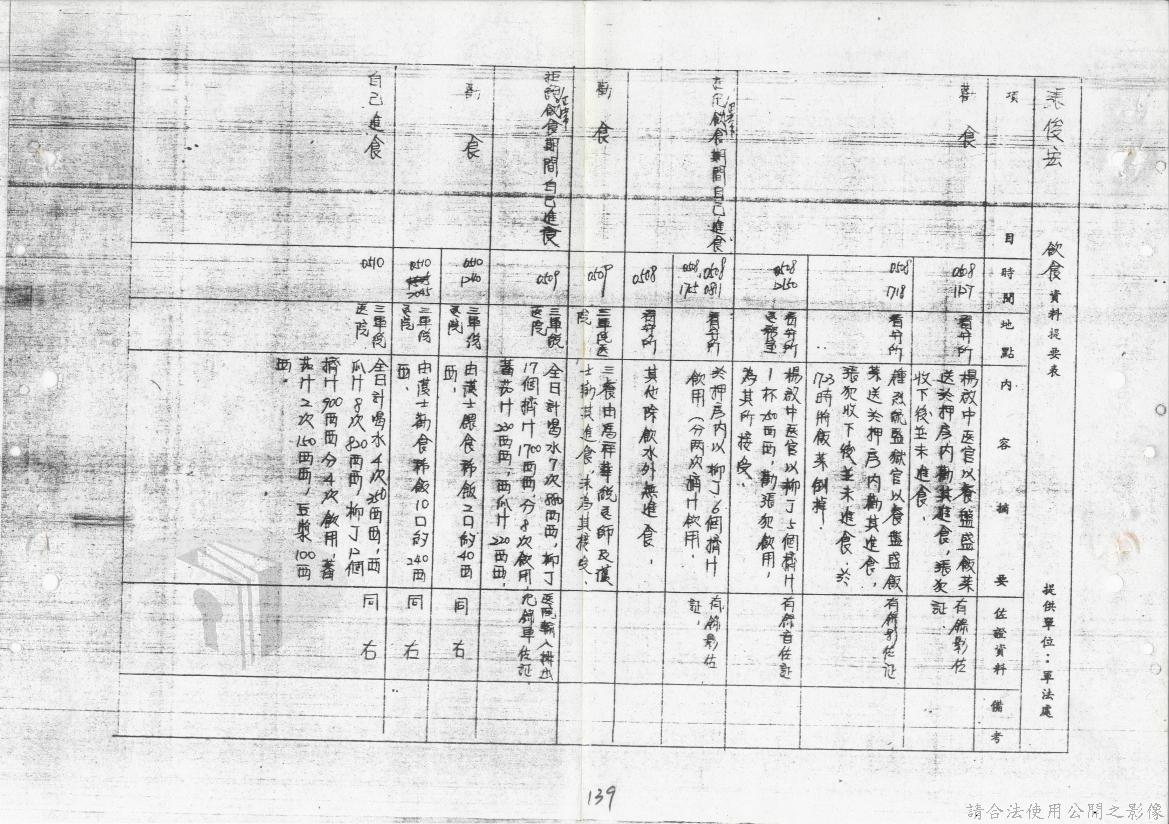 張俊宏 飲食資料提要表 提供單位：軍法處
項目 時間 地點 內容摘要 佐證資料 備考
勸食 0508 1127 看守所
楊啟中医官以餐盤盛飯菜
送於押房內勸其進食，張犯
收下後並未進食。
有錄影佐
証
0508 1718 看守所
監獄官以餐盤盛飯
菜送於押房內勸其進食，
張犯收下後並未進食，於
1723時將飯菜倒掉。
有錄影佐証
0508 2150 看守所医務室
楊啟中医官以柳丁5個擠汁
1杯250西西，勸張犯飲用，
為其所接受。
有錄音佐証
飲食期間自己進食
0508 0811 看守所
0508 1725
於押房內以柳丁6個擠汁
飲用（分兩次擠汁飲用。
有錄影佐
証。
0508 看守所
其他除飲水外無進食。
勸食 0509 三軍總医院
三餐由馬祥華醫師及護
士勸其進食，未為其接受、
拒絕飲食期間自己進食
0509 三軍總医院
全日計喝水7次880西西，柳丁
17個擠汁1700西西，分8次飲用
蕃茄汁230西西，西瓜汁220西西，
医院輸入排出
紀錄單佐証
勸食 0510 1240 三軍總医院
由護士餵食稀飯2口約40西
西。
同右
0510 2045 三軍總医院
由護士勸食稀飯10口約240西
西。
同右
自己進食 0510 三軍總医院
全日計喝水4次250西西，西
瓜汁8次820西西，柳丁12個
擠汁900西西分4次飲用，蕃
茄汁2次150西西，豆漿100西
西。
同右
139
請合法使用公開之影像